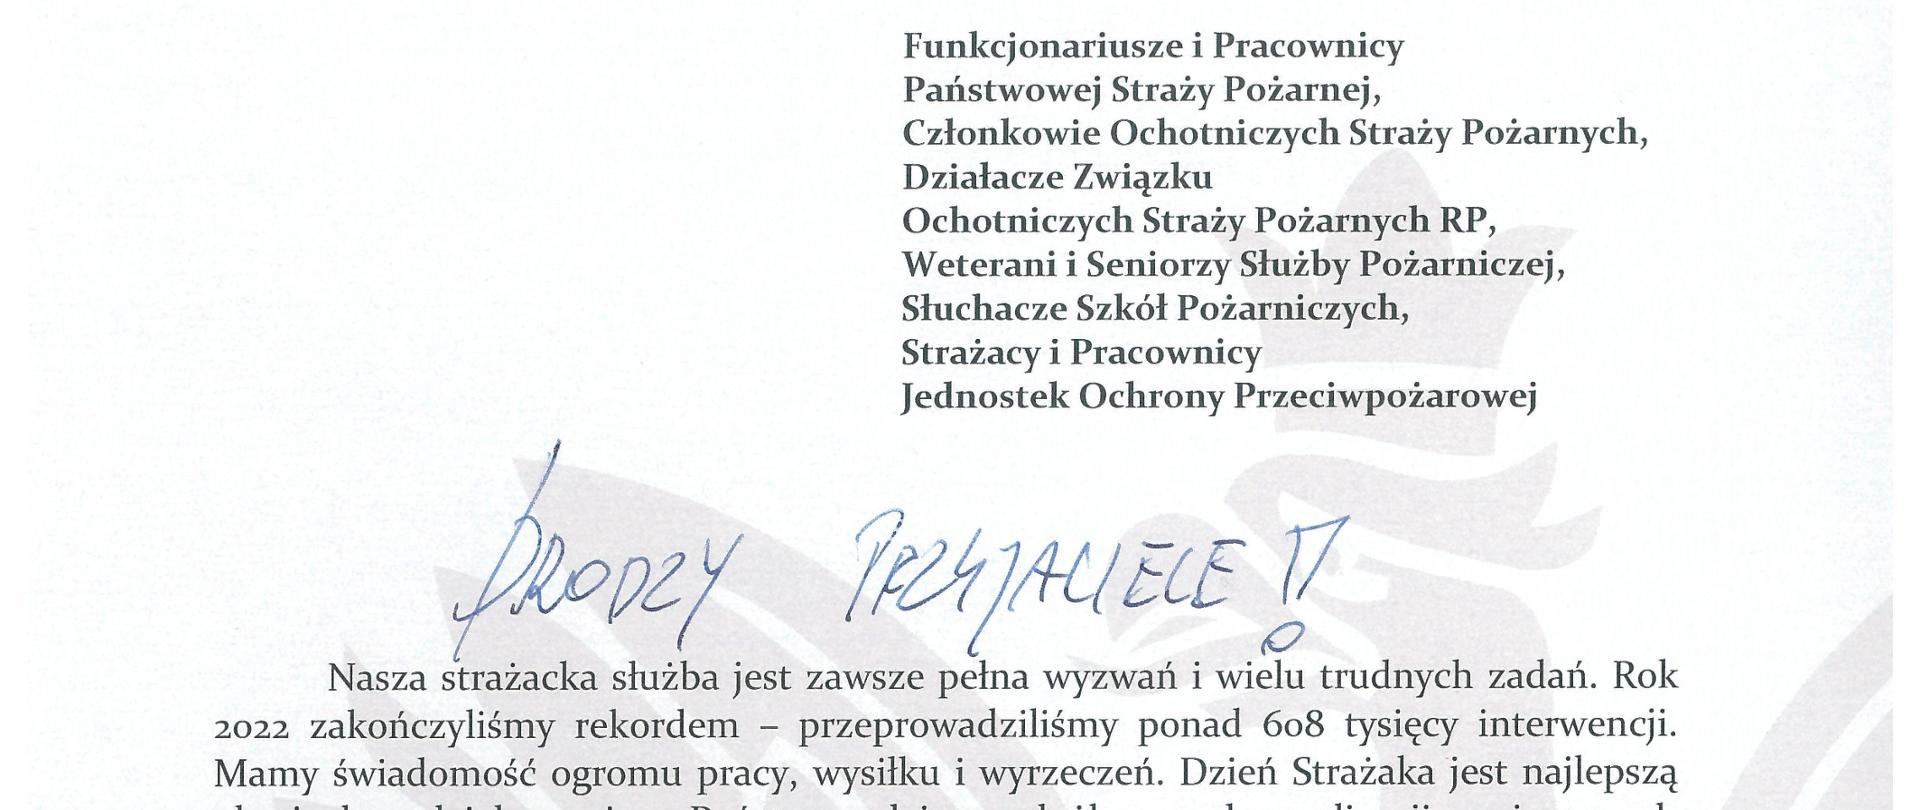 Funkcjonariusze i Pracownicy
Państwowej Straży Pożarnej,
Członkowie Ochotniczych Straży Pożarnych,
Działacze Związku
Ochotniczych Straży Pożarnych RP,
Weterani i Seniorzy Służby Pożarniczej,
Słuchacze Szkół Pożarniczych,
Strażacy i Pracownicy
Jednostek Ochrony Przeciwpożarowej
DRODZY PRZYJACIELE !
Nasza strażacka służba jest zawsze pełna wyzwań i wielu trudnych zadań. Rok
2022 zakończyliśmy rekordem – przeprowadziliśmy ponad 608 tysięcy interwencji.
Mamy świadomość ogromu pracy, wysiłku i wyrzeczeń. Dzień Strażaka jest najlepszą